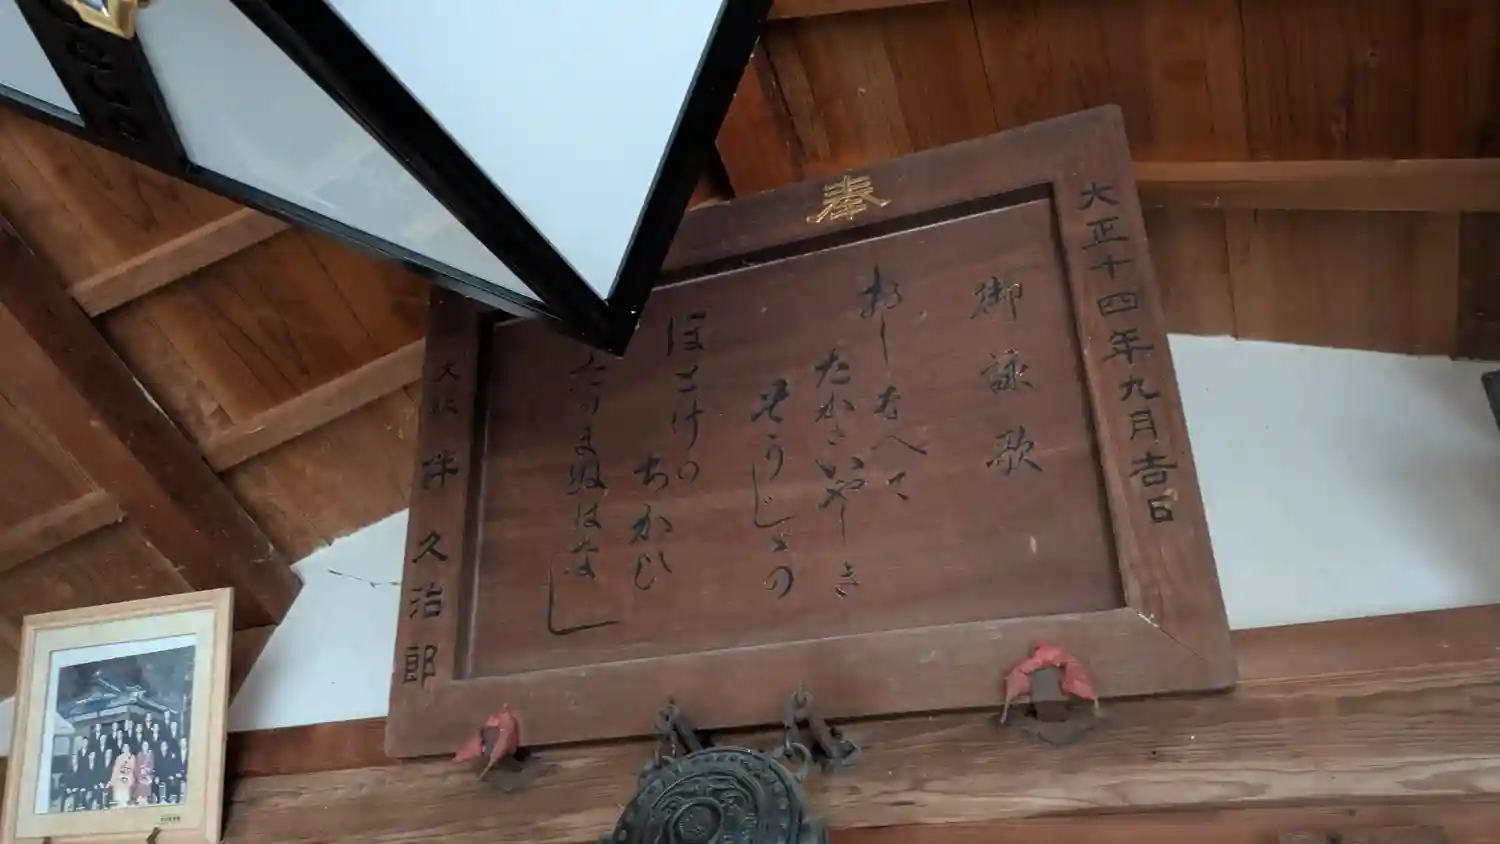 奉
大正十四年九月吉日
御詠歌
おしなへて
たかきいやしき
そうじゝの
ほとけの
ちかひ
たのまぬはなし
大阪 伴 久治郎